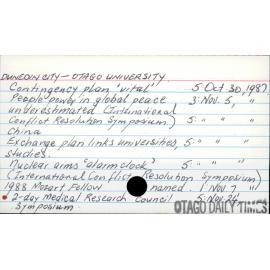 DUNEDIN CITY - OTAGO UNIVERSITY
Contingency plan "vital" 5: Oct 30, 1987
People power in global peace 3: Nov. 5, "
underestimated (International
Conflict Resolution Symposium) 5: " " "
China
Exchange plan links universities, 5: " " "
studies.
Nuclear arms "alarm clock" 5: " " "
(International Conflict Resolution Symposium)
1988 Mozart Fellow named 1: Nov 7 "
2-day Medical Research Council 5: Nov 24
Symposium
OTAGO DAILY TIMES